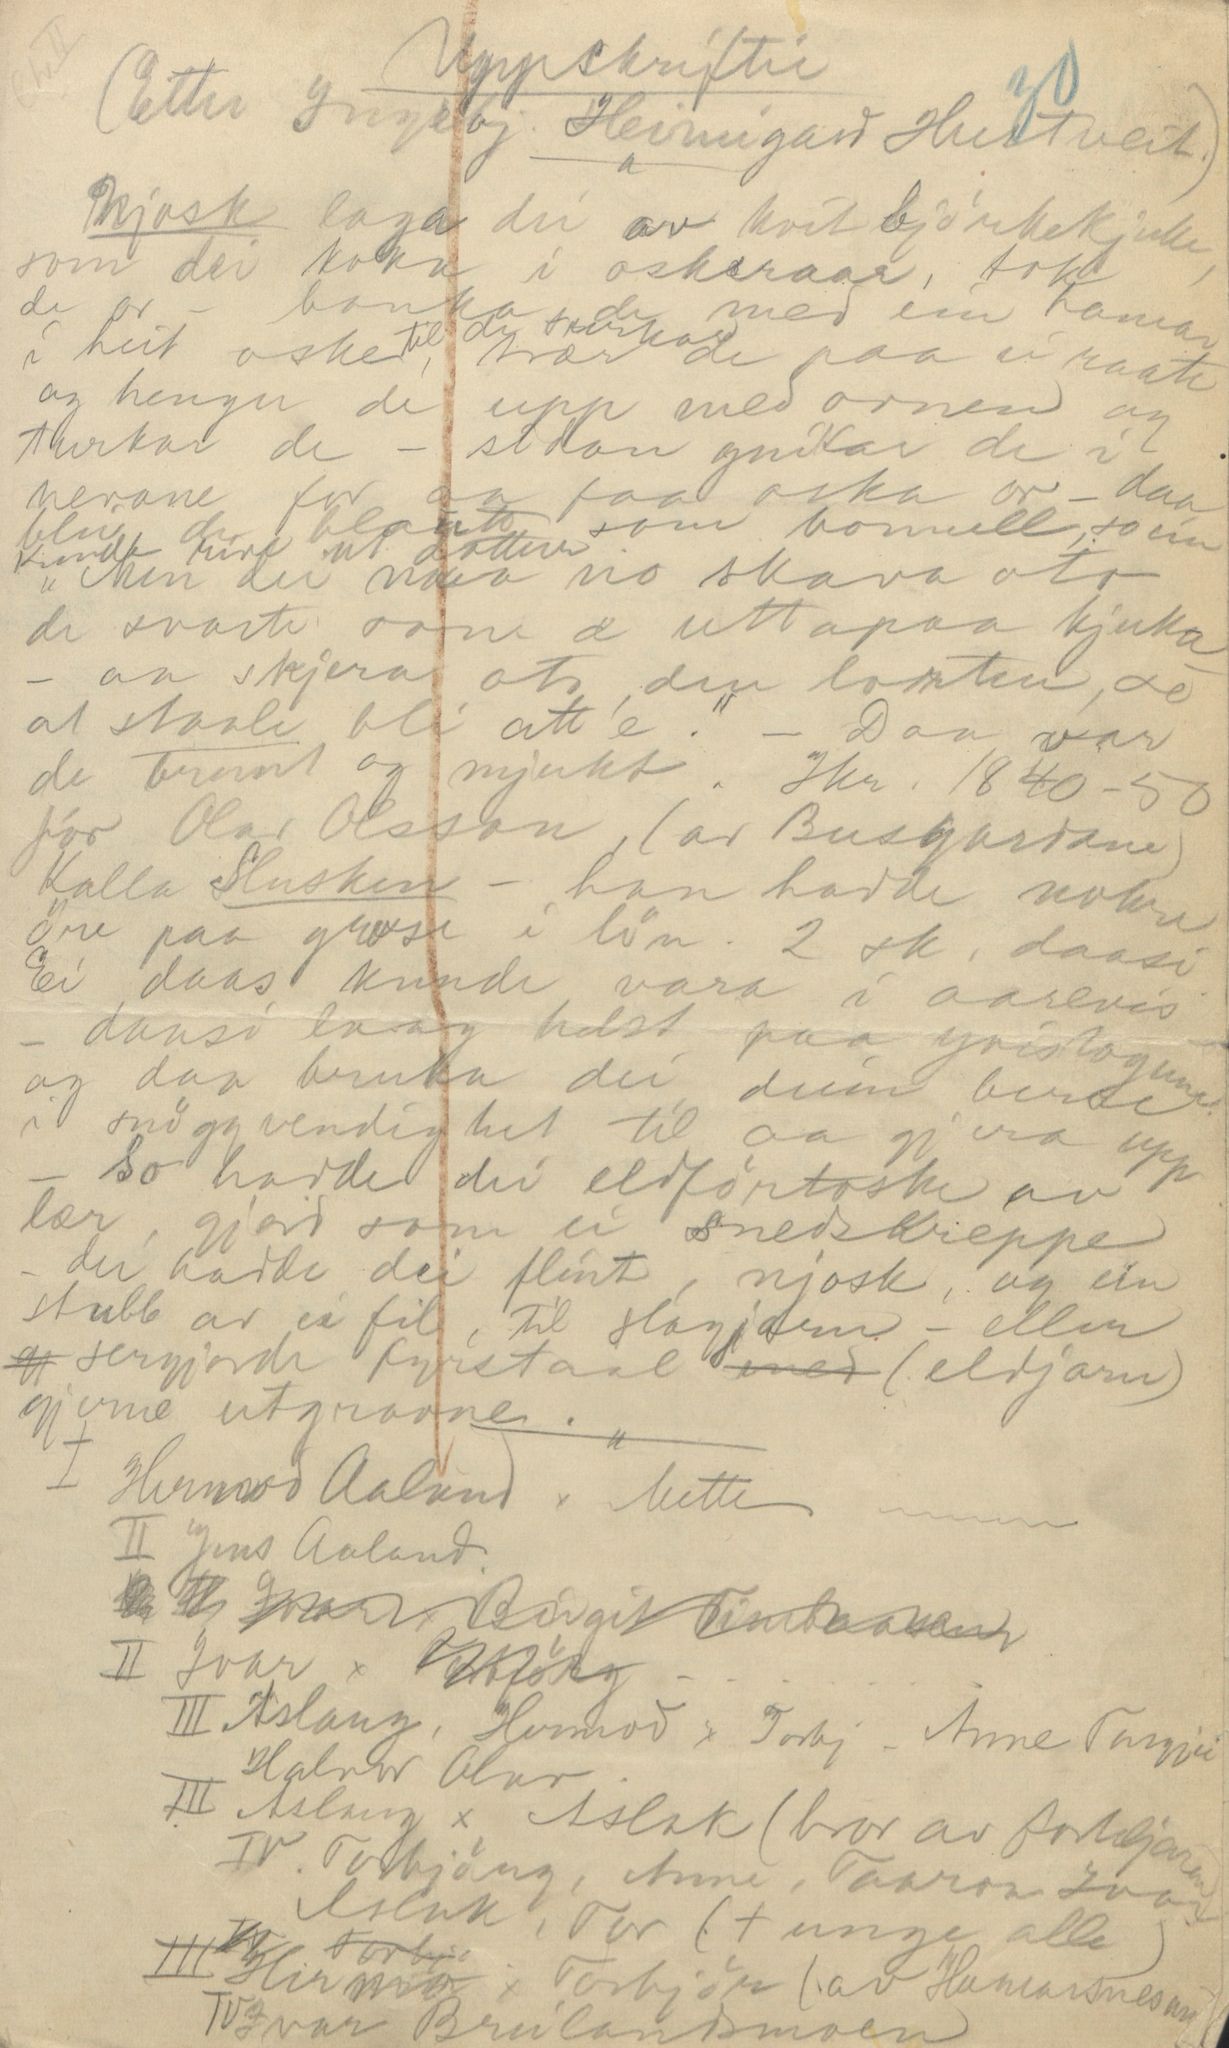 Uppskriftir 30
(Etter Ingebj. Heimigard Hustveit.)
"
Knjosk laga dei av kvit björkekjuke,
som dei koka i oskeraae, tok
de or - banka de med ein hamar
i heit oske, til de turkar, trær de paa ei raate
og henger de upp med ornen og
turkar de - sidan gnikar de i
nevane for aa faa oska or - daa
blei de blautt som bomull, so ein
kunde rive ut dottur
"Men dei maa no skava otr
de svarte som æ uttapaa kjuka
- aa skjera otr den lorten, so
at staale bli att 'e." - Daa var
de brunt og mjukt. Ikr. 1840-50
för Olav Olsson, (av Busgardane)
Kalla Slusken - han hadde nokre
öre paa grose i lön. 2 sk. daasi
Ei daas kunde vara i aarevis
- daasi laag helst paa grisTogune
og daa bruka dei deim berre
i snöggvendighet til aa gjera upp
- So hadde dei eldförtaske av
lær, gjord som ei snedskreppe
- der hadde dei flint, njosk, og ein
stubb av ei fil, til slagjarn - eller
sergjorde fyrstaal med (eldjarn)
gjerne utgravne.
"
I Hermod Aaland x Mette
II Jens Aaland.
Ivar x Birgit
II Ivar x
III Aslaug, Hermod x Torbj - Anne Targjei
Halvor Olav.
III Aslaug x Aslak (bror av forteljaren)
IV. Torbjörg, Anne, Taaron Ivar
Aslak, Tor († unge alle)
III x Torbjör (av Hamarsnesan
IV Ivar Breilandsmoen